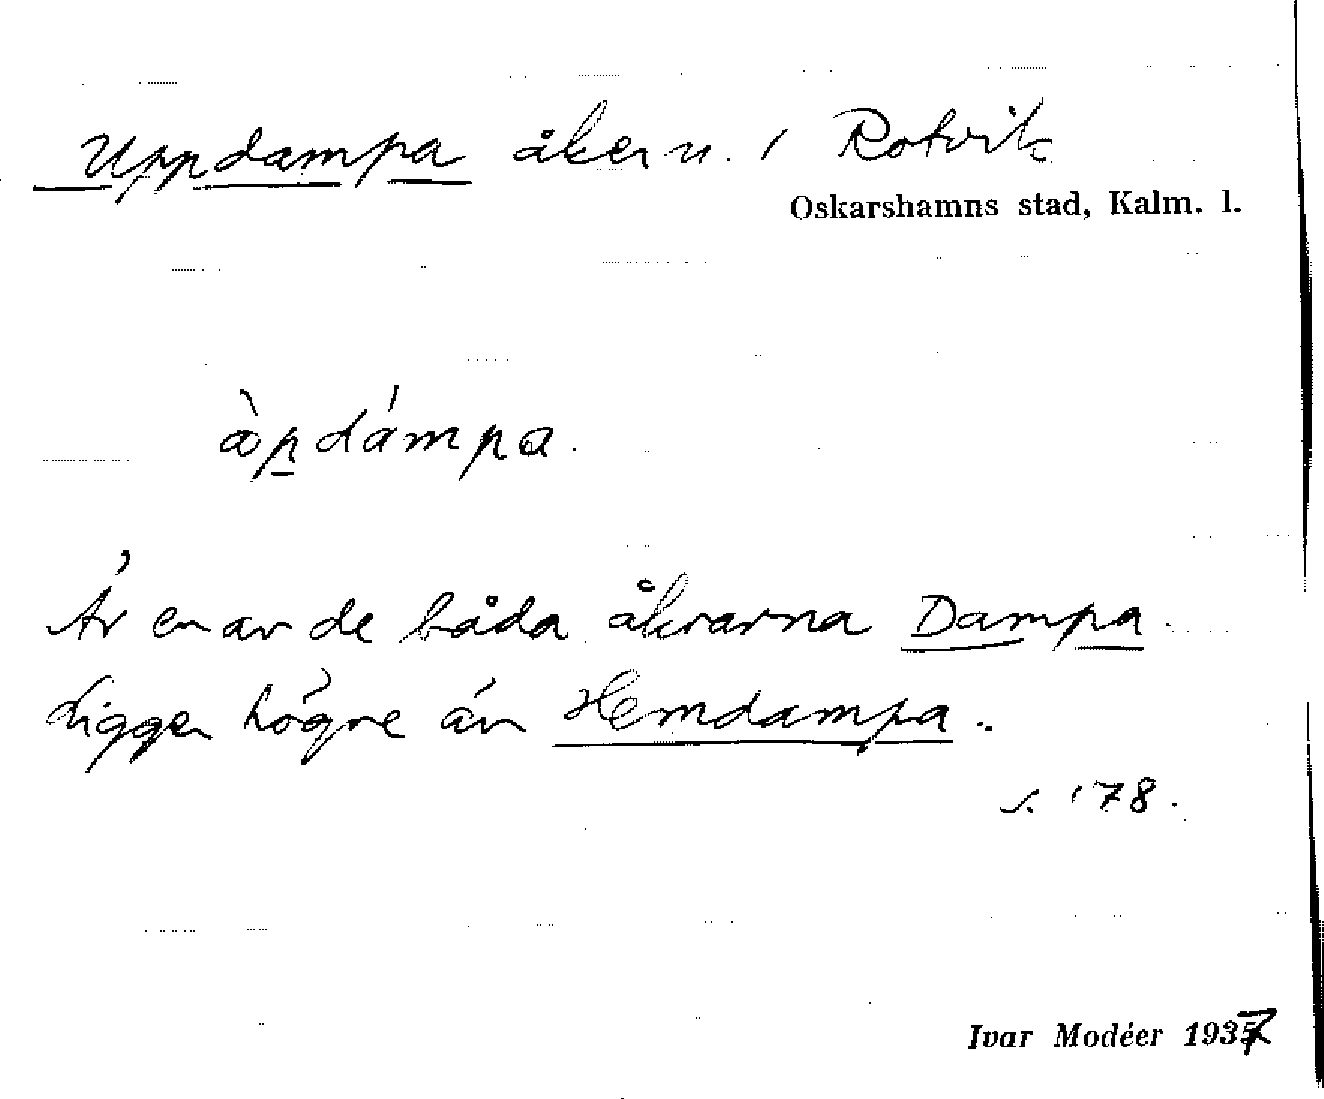 Uppdampa åker n. i Rotvik
Oskarshamns stad, Kalm. l.
àpdámpa.
Är en av de båda åkrarna Dampa.
Ligger högre än Hemdampa.
s. 178.
Ivar Modéer 1937